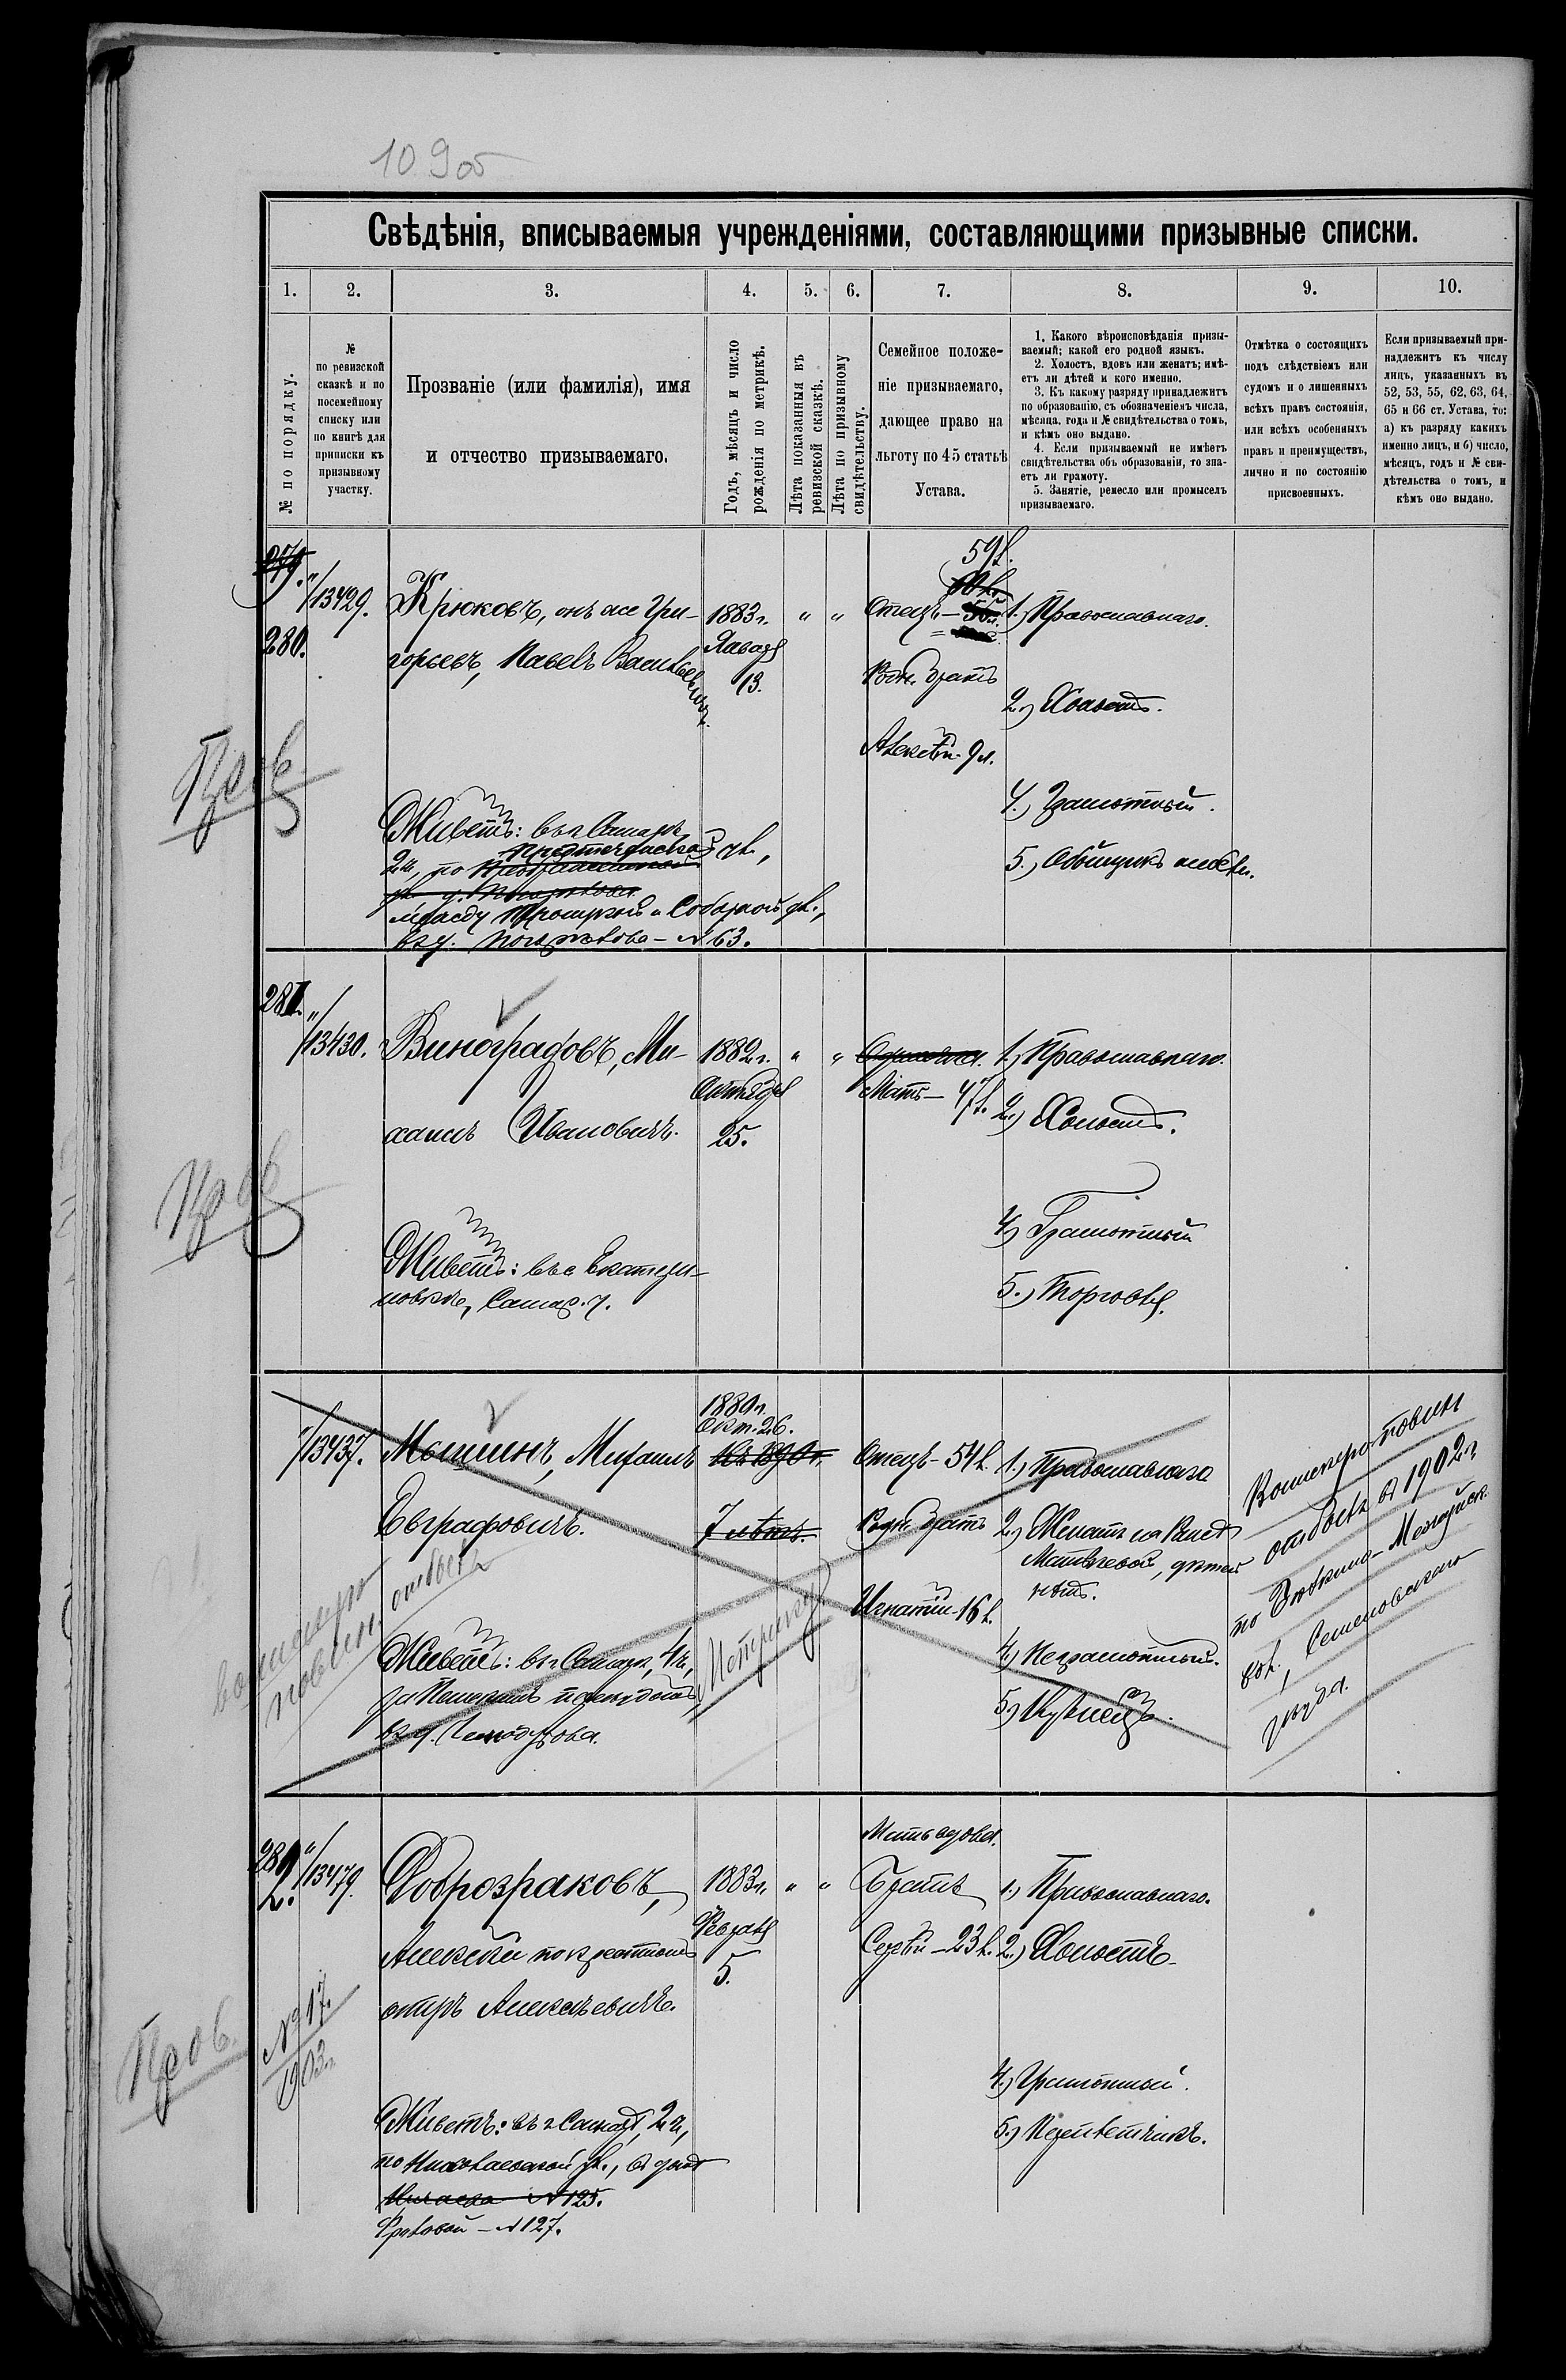 109 об
Свѣдѣнія, вписываемыя учрежденіями, составляющими призывные списки.
1. 2. 3. 4. 5. 6. 7. 8. 9. 10.
№ по порядку.
№
по ревизской
сказкѣ и по
посемейному
списку или
по книгѣ для
приписки къ
призывному
участку.
Прозваніе (или фамилія), имя
и отчество призываемаго.
Годъ, мѣсяцъ и число
рожденія по метрикѣ.
Лѣта показанныя въ
ревизской сказкѣ.
Лѣта по призывному
свидѣтельству.
Семейное положе-
ніе призываемаго,
дающее право на
льготу по 45 статьѣ
Устава.
1. Какого вѣроисповѣданія призы-
ваемый; какой его родной языкъ.
2. Холостъ, вдовъ или женатъ; имѣ-
етъ ли дѣтей и кого именно.
3. Къ какому разряду принадлежитъ
по образованію, съ обозначеніемъ числа,
мѣсяца, года и № свидѣтельства о томъ,
и кѣмъ оно выдано.
4. Если призываемый не имѣетъ
свидѣтельства объ образованіи, то зна-
етъ ли грамоту.
5. Занятіе, ремесло или промыселъ
призываемаго.
Отмѣтка о состоящихъ
подъ слѣдствіемъ или
судомъ и о лишенныхъ
всѣхъ правъ состоянія,
или всѣхъ особенныхъ
правъ и преимуществъ,
лично и по состоянію
присвоенныхъ.
Если призываемый при-
надлежитъ къ числу
лицъ, указанныхъ въ
52, 53, 55, 62, 63, 64,
65 и 66 ст. Устава, то:
а) къ разряду какихъ
именно лицъ, и б) число,
мѣсяцъ, годъ и № сви-
дѣтельства о томъ, и
кѣмъ оно выдано.
279.
280.
"/13429.
Пров
Крюковъ, онъ же Гри-
горьевъ, Павелъ Васильевичъ.
Живетъ: въ г. Самарѣ,
2 ч., по Предтеченской ул.,
между Троицкой и Соборной ул.,
въ д. № 63.
1883 г.
Января
13.
" "
59 л.
60 л.
Отецъ — 56 л.
Родн. братъ
Алексѣй 9 л.
1.) Православнаго.
2.) Холостъ.
4.) Грамотный.
5.) Обойщикъ мебели.
281.
"/13430.
Пров
Виноградовъ, Ми-
хаилъ Ивановичъ.
Живетъ: въ с. Екатери-
новкѣ, Самар. у.
1882 г.
Октября
25.
" "
Одиночка.
Мать — 47 л.
1.) Православнаго.
2.) Холостъ.
4) Грамотный
5.) Торговля.
"/13437.
Мошинъ, Михаилъ
Евграфовичъ.
воинскую
повин. отбылъ
Живетъ: въ г. Самарѣ, 4 ч.,
въ д.
1880 г.
Окт. 26.
Къ 1890 г.
7 лѣтъ.
Метрику
Отецъ — 54 л.
Родн. братъ
Игнатій 16 л.
1.) Православнаго
2.) Женатъ на
Матвѣевой, дѣтей
нѣтъ.
4) Неграмотный.
5) Кузнецъ.
Воинскую повин
отбылъ въ 1902 г.
по
вол., Семеновскаго
уѣзда.
289
2.
"/13479.
Пров.
№ 17.
1903 г.
Доброзраковъ,
Алексѣй
Алексѣевичъ.
Живетъ: въ г. Самарѣ, 2 ч.,
по Николаевской ул., въ домѣ
№ 125.
Фроловой — № 127.
1883 г.
Февраля
5.
" "
Мать вдова.
Братъ
Сергѣй — 23 л.
1.) Православнаго.
2.) Холостъ.
4.) Грамотный.
5.) Переплетчикъ.